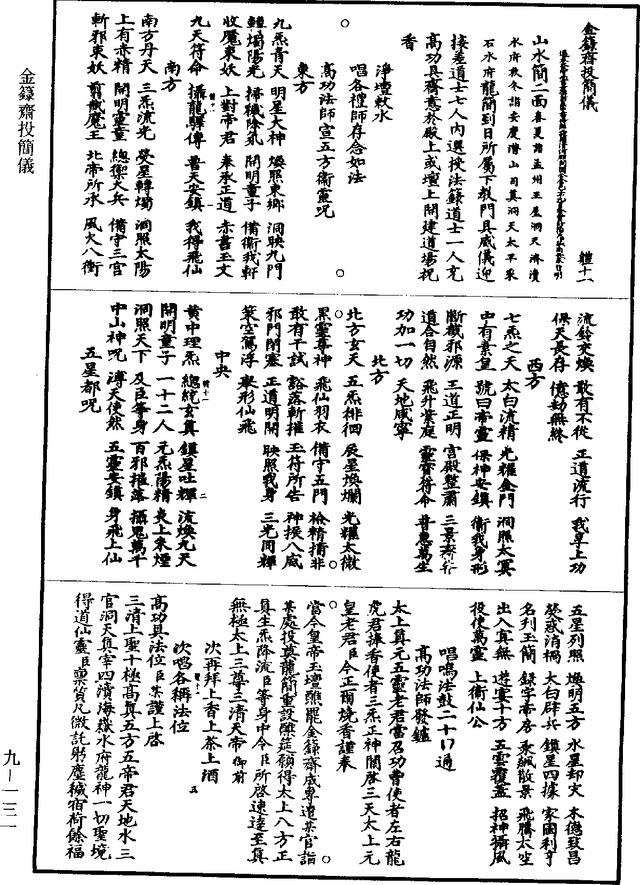 金籙齋投簡儀
體十一
山水簡二面春夏詣孟州王屋洞天濟瀆
水府秋冬詣安慶潛山司真洞天太平采
石水府龍簡到日所屬下教門具威儀迎
接差道士七人內選授法籙道士一人充
高功具齋意於殿上或壇上開建道場祝
香
淨壇敕水
唱各禮師存念如法
高功法師宣五方衛靈呪
東方
九炁青天 明星大神 煥照東鄉 洞映九門
轉燭陽光 掃穢除氛 開明童子 備衛我軒
收魔束妖 上對帝君 奉承正道 赤書玉文
九天符命 攝龍驛傳 普天安鎮 我得飛仙
南方
南方丹天 三炁流光 熒星轉燭 洞照太陽
上有赤精 開明靈童 總御火兵 備守三宮
斬邪束妖 剪截魔王 北帝所承 風火八衝
流鈴交煥 敢有不從 正道流行 我享上功
保天長存 億劫無終
西方
七炁之天 太白流精 光耀金門 洞照太冥
中有素皇 號曰帝靈 保神安鎮 衛我身形
斷截邪源 王道正明 宮殿整肅 三景齊行
道合自然 飛升紫庭 靈寶符命 普惠萬生
功加一切 天地咸寧
北方
北方玄天 五炁徘徊 辰星煥爛 光耀太微
黑靈尊神 飛仙羽衣 備守五門 檢精捕非
敢有干試 豁落斬摧 玉符所告 神援八威
邪門閉塞 正道明開 映照我身 三光同輝
策空駕浮 舉形仙飛
中央
黃中理炁 總統玄真 鎮星吐輝 流煥九天
開明童子 一十二人 元炁陽精 炎上朱煙
洞照天下 及臣等身 百邪摧落 攝鬼萬千
中山神呪 溥天使然 五靈安鎮 身飛上仙
五星都呪
五星列照 煥明五方 水星却灾 木德致昌
熒惑消禍 太白辟兵 鎮星四據 家國利亨
名列玉簡 錄字帝房 乘飆散景 飛騰太空
出入冥無 遊宴十方 五雲覆蓋 招神攝風
役使萬靈 上衛仙公
唱鳴法鼓二十四通
高功法師發鑪
太上真元五靈老君當召功曹使者左右龍
虎君捧香使者三炁正神關啓三天太上元
皇老君臣今正爾燒香謹奉
當今皇帝玉壇醮罷金籙齋咸專遣某官詣
某處投奠龍簡重設醮筵願得太上八方正
真生炁降流臣等身中令臣所啓速達至真
無極太上三尊三清天帝御前
次再拜上香上茶上酒
次唱各稱法位
高功具法位臣某謹上啓
三清上聖十極高真五方五帝君天地水三
官洞天真宰四瀆海嶽水府龍神一切聖境
得道仙靈臣稟質凡微託躬塵穢宿荷餘福
金籙齋投簡儀
九-一三一